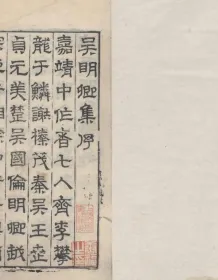 吳明卿集序
嘉靖中作者七人齊李攀
龍于鱗謝榛茂秦吳王世
貞元美楚吳國倫明卿越